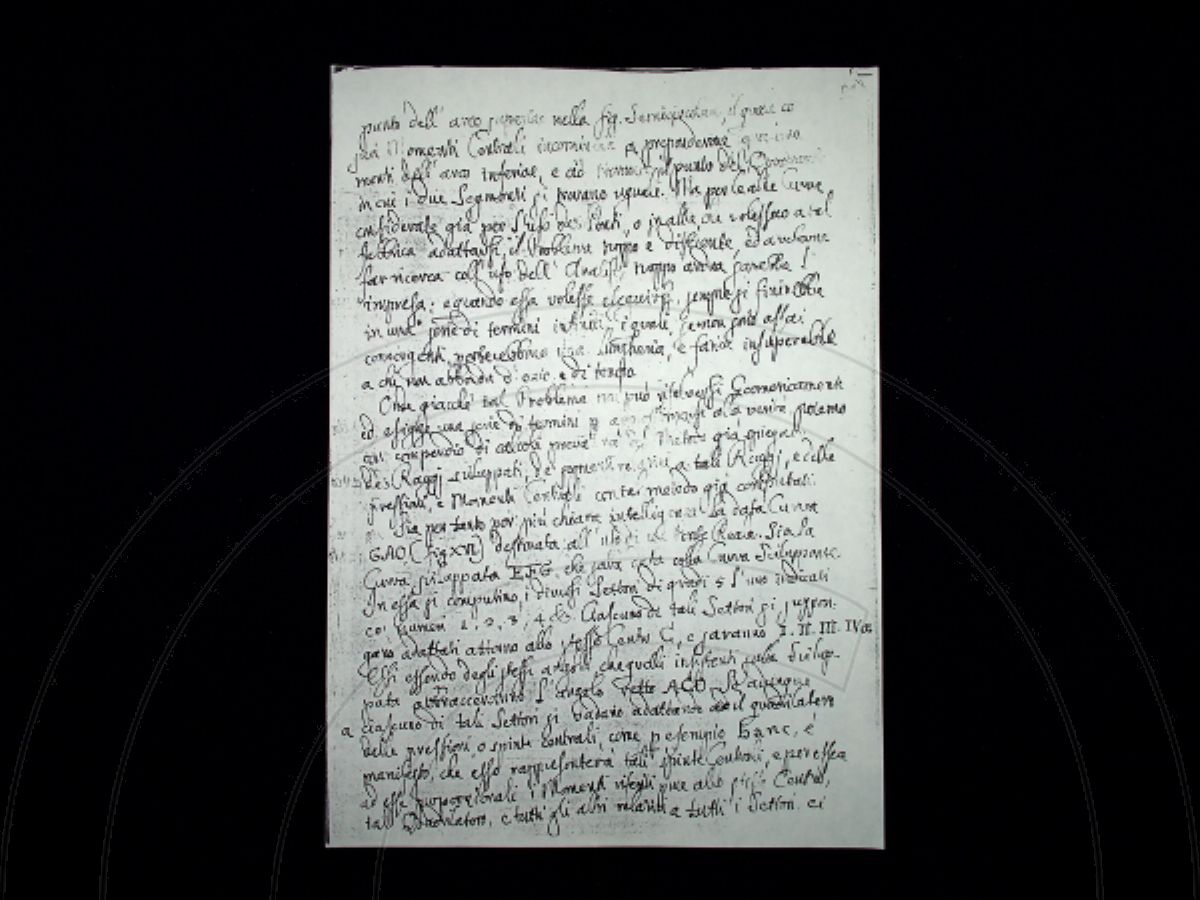 punto dell' arco superiore nella fig. Semicircolare, il quale co
suoi Momenti Centrali incomincia a preponderare
menti dell' arco inferiore, e ciò nel punto del
in cui i due Segmenti si trovano uguali. Ma per le altre Curve
considerate già per l'uso dei Ponti, o in altre che volessero a tal
fabbrica adattarsi, il Problema troppo è difficile, ed a volerne
far ricerca coll' uso dell' Analisi troppo ardua sarebbe l'
impresa: e quando essa volesse eseguirsi, sempre si finirebbe
in una serie di termini infiniti, i quali, se non sono assai
convergenti, una lungheria, e fatica insuperabile
a chi non abbonda d' ozio, e di tempo.
Onde giacchè tal Problema non può risolversi Geometricamente
ed esigge una serie di termini alla verità, potremo
con compendio di calcoli Metodo già spiegato
dei Raggi sviluppati, de' a tali Raggi, e delle
pressioni, e Momenti Centrali con tal metodo già computati.
Sia per tanto per più chiara intelligenza la data Curva
GAO (fig XVI) destinata all' uso di un Ponte Reale. Sia la
Curva sviluppata EFG, che sarà colla Curva Sviluppante.
In essa si computino i diversi Settori di gradi 5 l'uno indicati
co' numeri 1, 2, 3, 4 &c. Ciascuno de tali Settori si suppon-
gano adattati attorno allo stesso Centro C, e saranno I. II. III. IV &c
Essi essendo degli stessi angoli eneguali insistenti sulla Svilup-
pata abbracceranno l' angolo retto ACO. Se adunque
a ciascuno di tali Settori si vadano adattando il quadrilatero
delle pressioni, o spinte centrali, come per esempio Banc, è
manifesto, che esso rappresenterà tali spinte Centrali, e per essea
ad esse proporzionali i Momenti riferiti pure allo stesso Centro,
tal Quadrilatero, e tutti gli altri relativi a tutti i Settori, ci